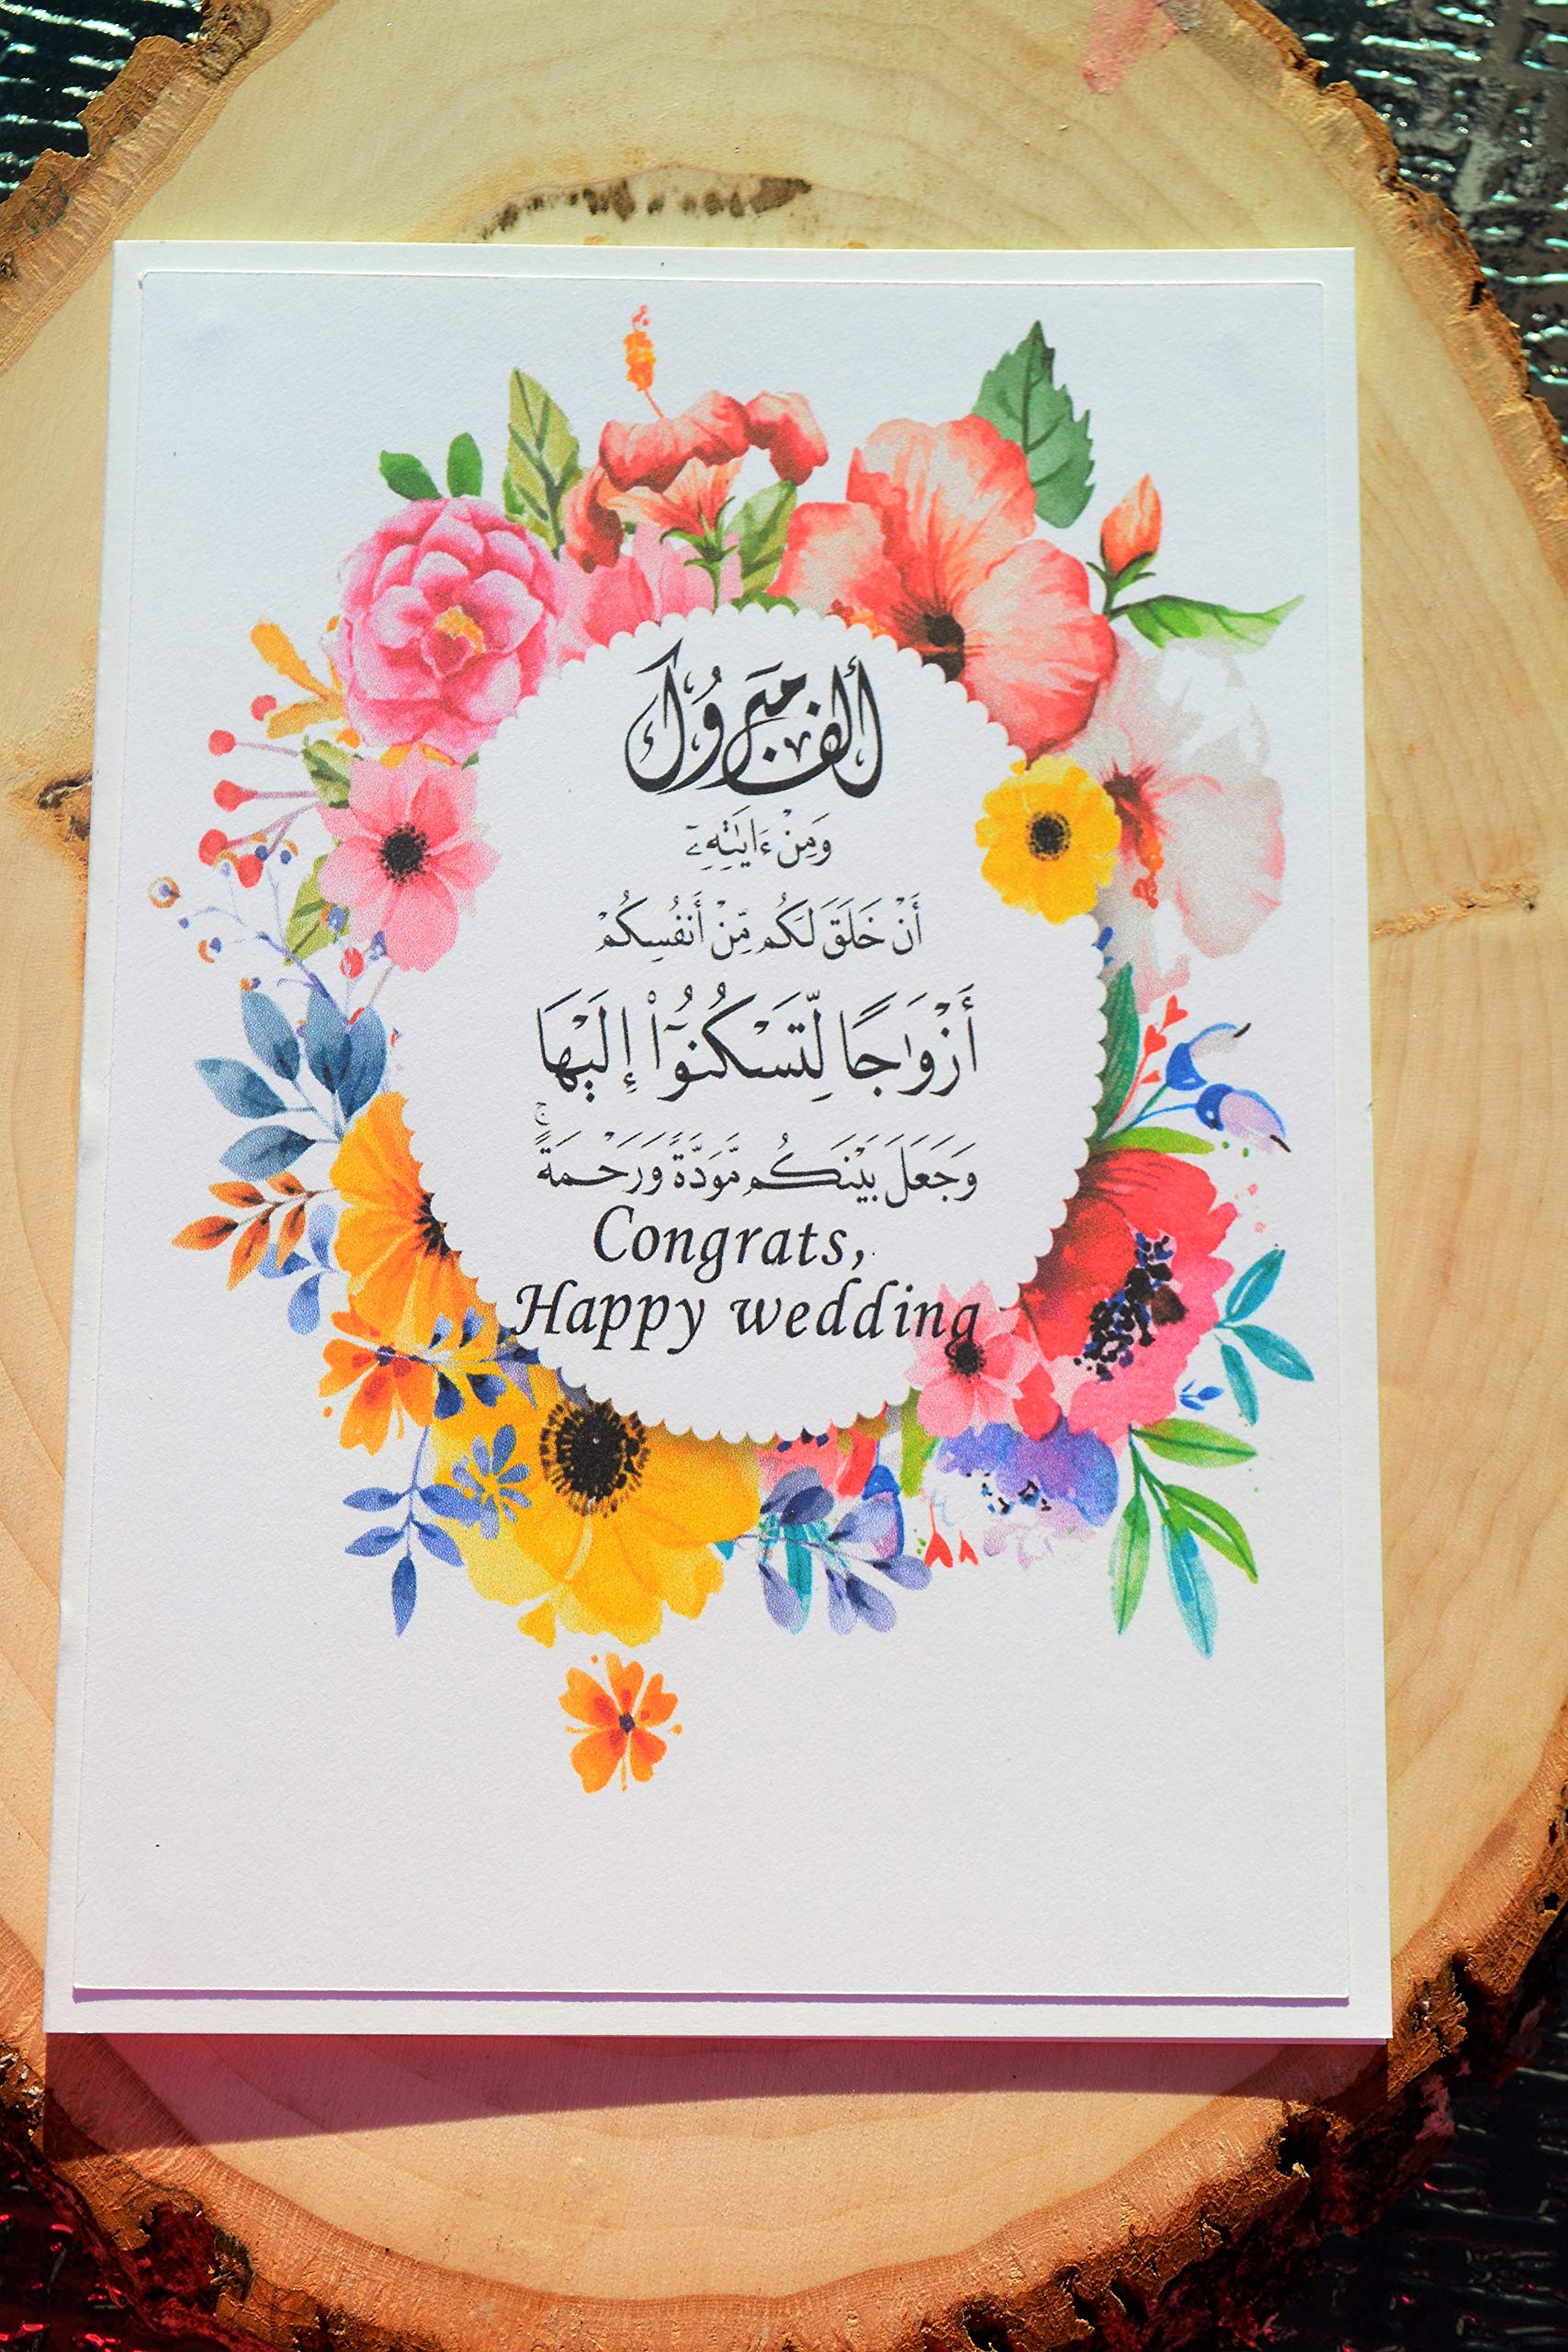 ألف مَبْرُوك
وَمِنْ ءَايَٰتِهِۦٓ
أَنْ خَلَقَ لَكُم مِّنْ أَنفُسِكُمْ
أَزْوَٰجًا لِّتَسْكُنُوٓا۟ إِلَيْهَا
وَجَعَلَ بَيْنَكُم مَّوَدَّةً وَرَحْمَةً ۚ
Congrats,
Happy wedding